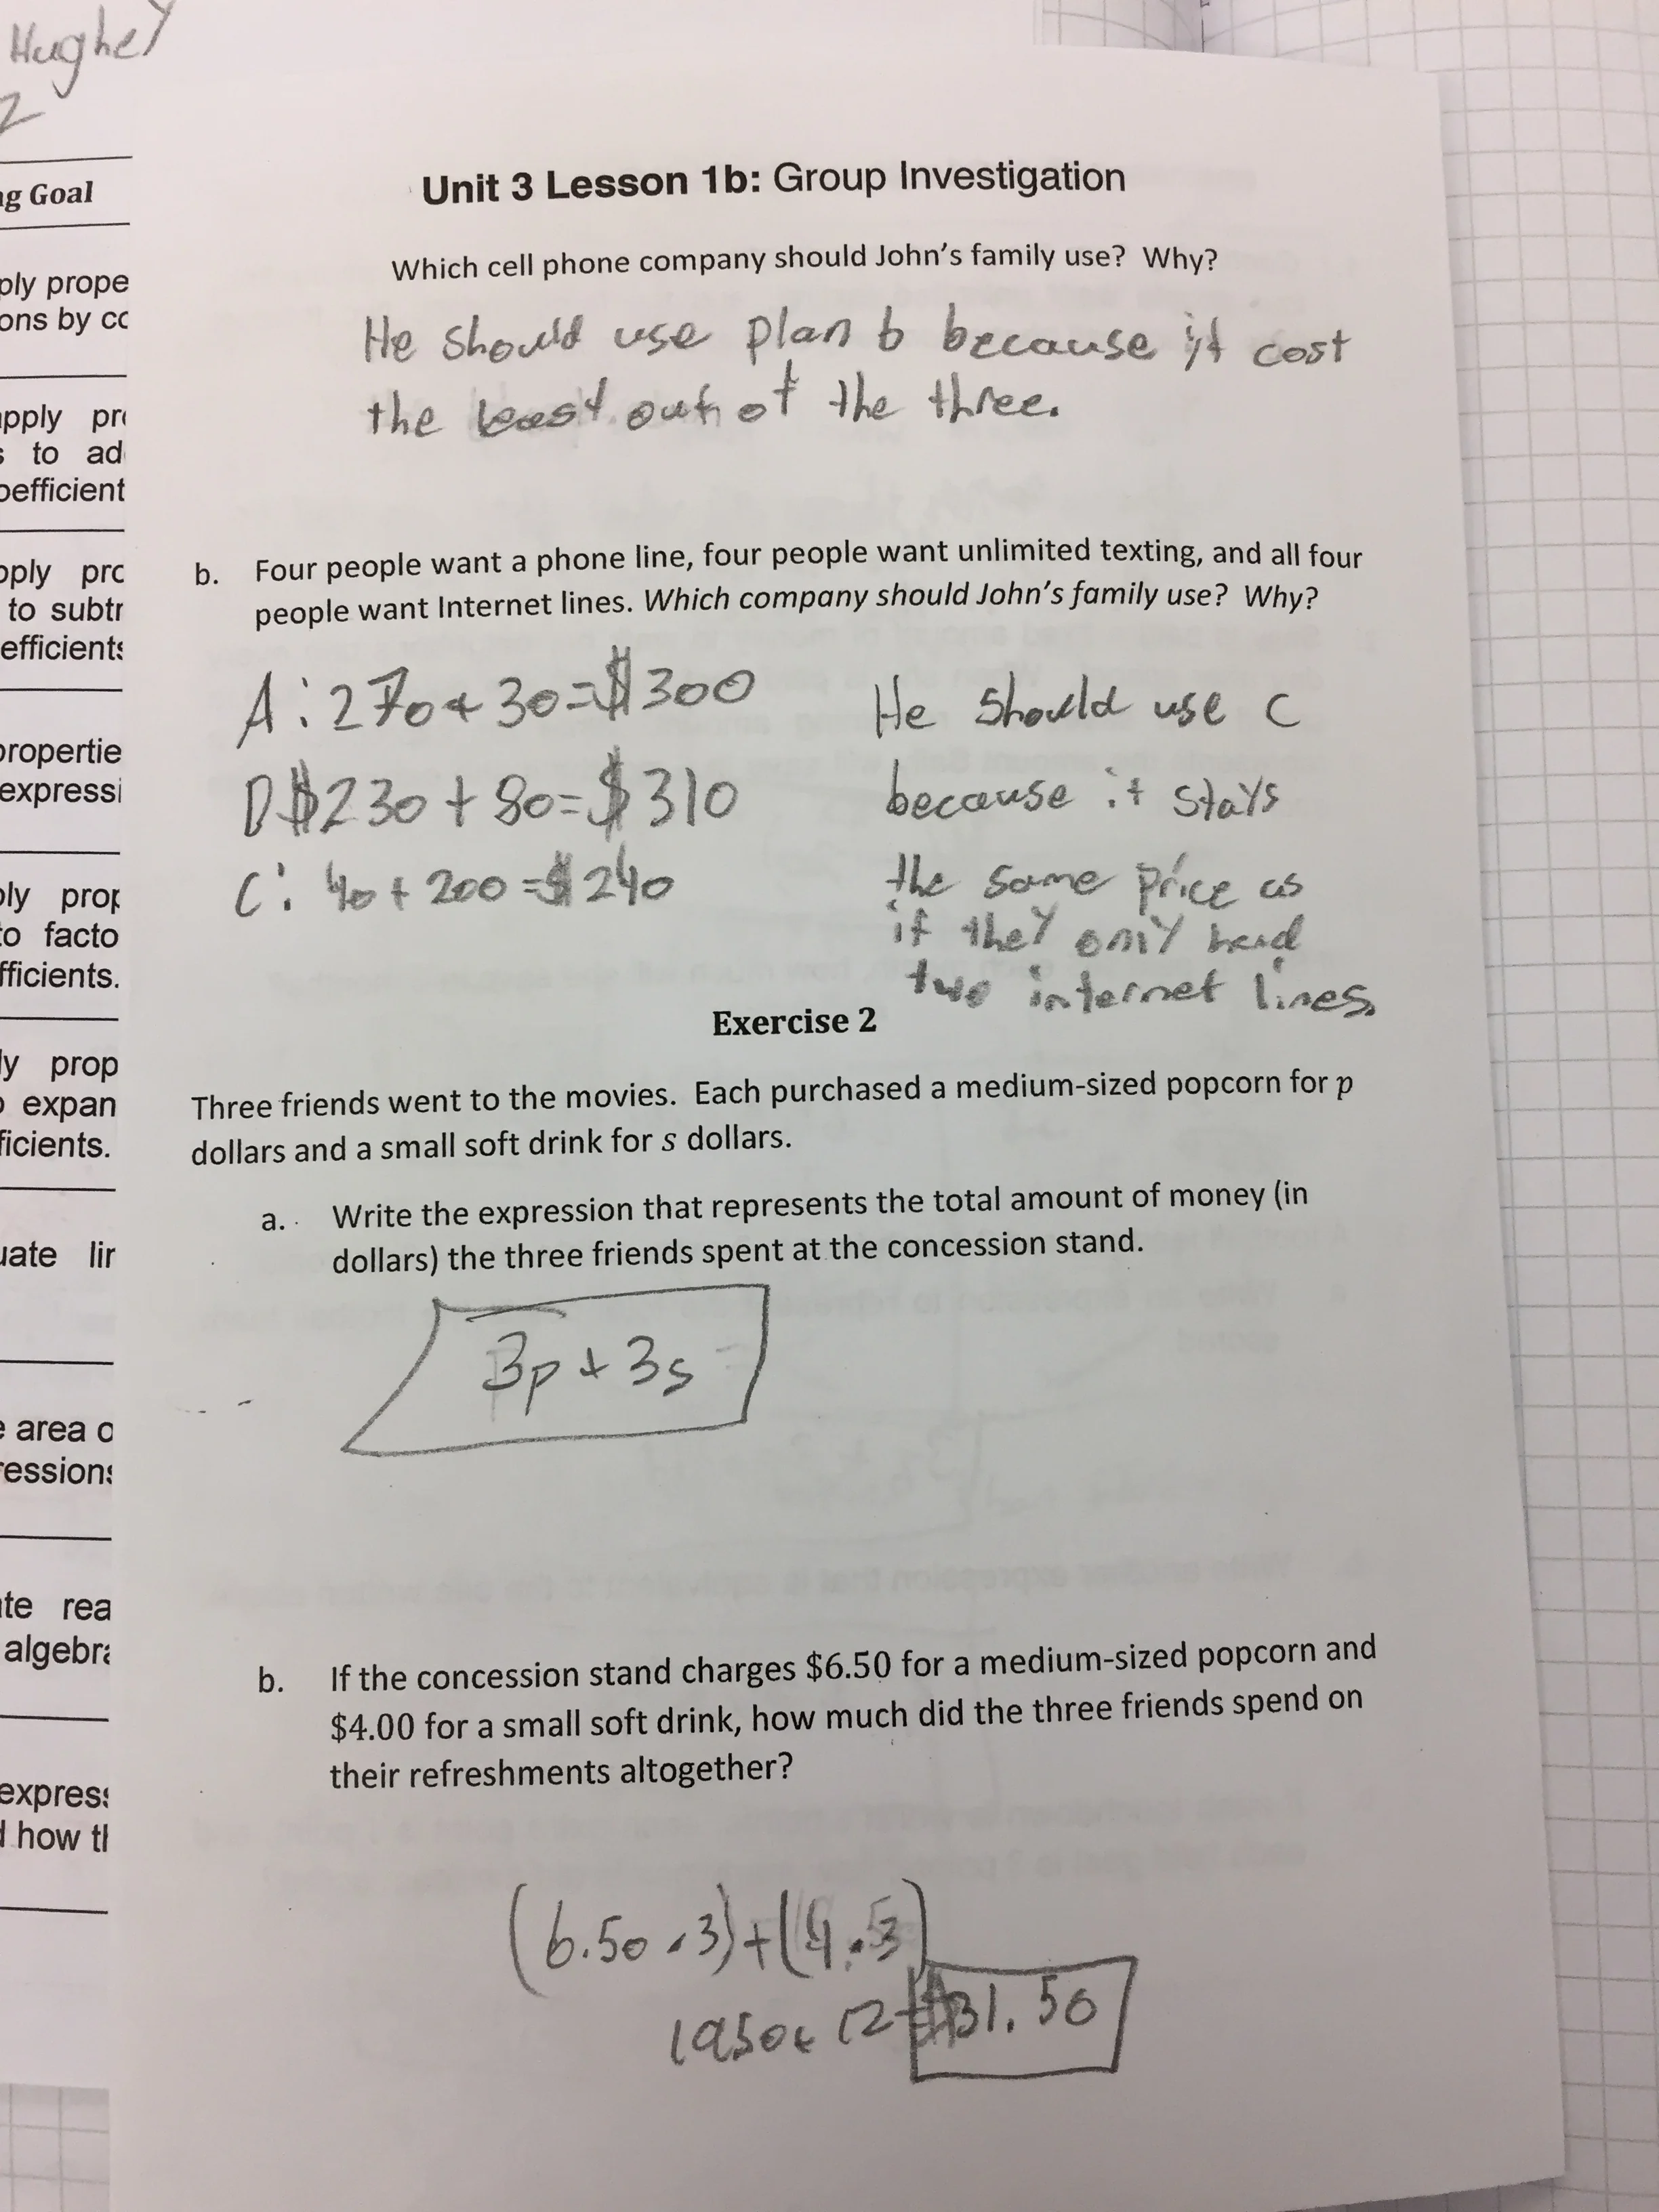 Hughey
2
ng Goal
ply prope
ons by cc
apply pro
s to ad
oefficient
pply pro
to subtr
efficients
propertie
expressi
ply prop
to facto
fficients.
ly prop
o expan
ficients.
uate lin
e area o
ressions
ate rea
algebra
express
d how th
Unit 3 Lesson 1b: Group Investigation
Which cell phone company should John's family use? Why?
He should use plan b because it cost
the least out of the three.
b. Four people want a phone line, four people want unlimited texting, and all four
people want Internet lines. Which company should John's family use? Why?
A: 270+30=$300
D $230+80=$310
C: 40+200=$240
He should use C
because it stays
the same price as
if they only had
two internet lines.
Exercise 2
Three friends went to the movies. Each purchased a medium-sized popcorn for p
dollars and a small soft drink for s dollars.
a. Write the expression that represents the total amount of money (in
dollars) the three friends spent at the concession stand.
3p+3s
b. If the concession stand charges $6.50 for a medium-sized popcorn and
$4.00 for a small soft drink, how much did the three friends spend on
their refreshments altogether?
(6.50·3)+(4·3)
1950+12=$31.50